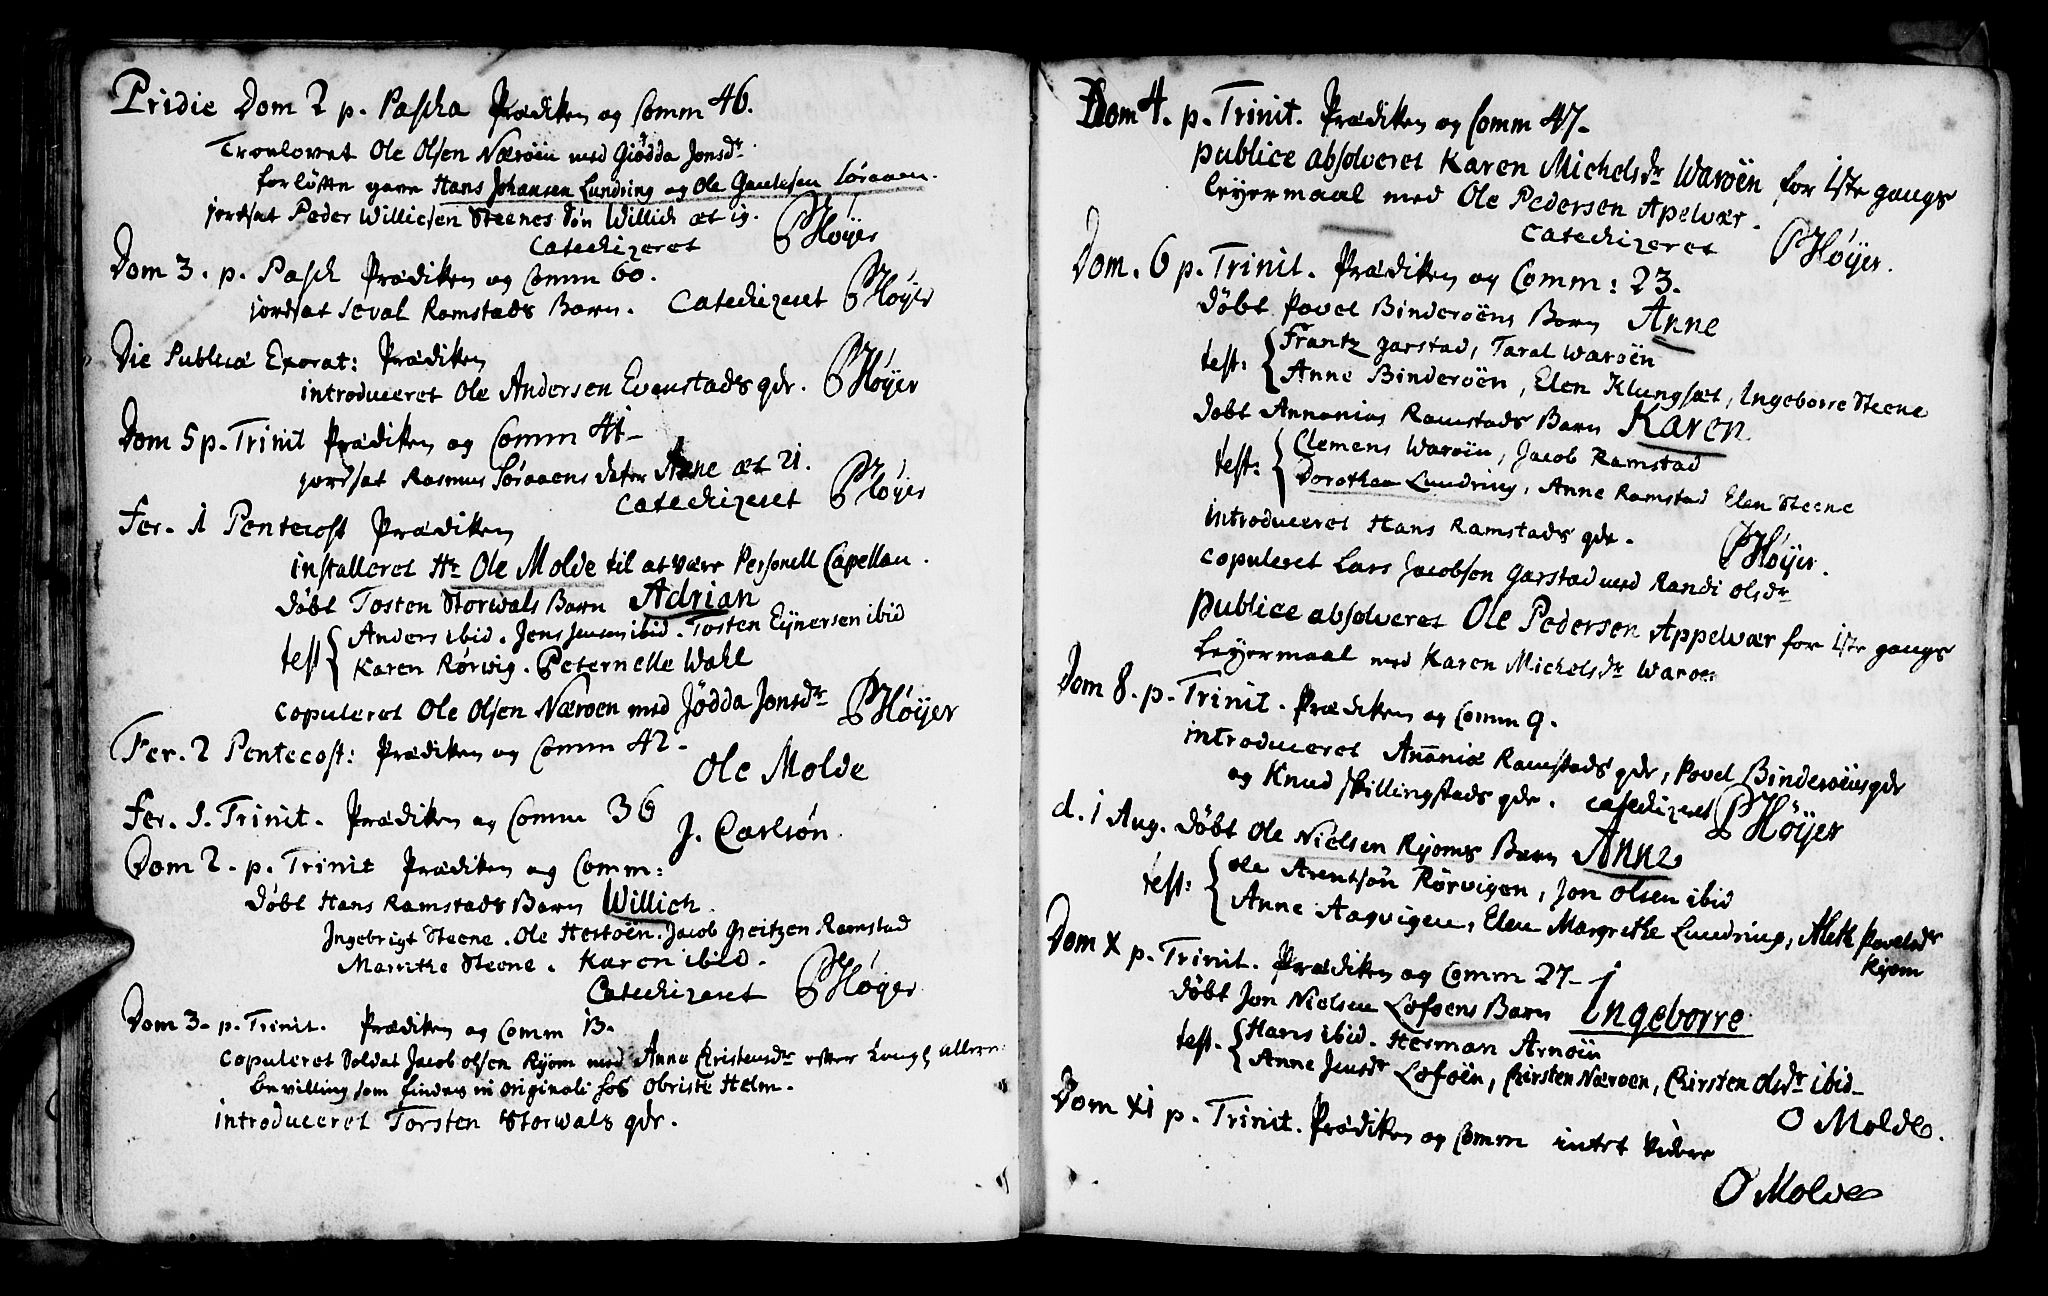 Pridie Dom 2 p. Pascha Prædiken og Comm 46.
Troelovet Ole Olsen Nærøen med Giødda Jonsdr
forløftn gave Hans Johansen Lundring og Ole Søraaen.
jordsat Peder Willicsen Steenes Søn Willich æt
Catechizeret PHøyer
Dom 3. p. Pasch Prædiken og Comm 60.
jordsat Seval Ramstads Barn. Catechizeret PHøyer
Die Publicæ Exorat: Prædiken
introduceret Ole Andersen Evenstads qdr. PHøyer
Dom 5 p. Trinit Prædiken og Comm 41
jordsat Rasmus Søraaens dater Anne æt 21.
Catechizeret PHøyer
Fer. 1 Pentecost Prædiken
installeret Hr Ole Molde til at være Personell Capellan.
døbt Tosten Storvals Barn Adrian
test Anders ibid. Jens Jensen ibid. Tosten Eynersen ibid
Karen Rørvig. Peternelle Wahl
copuleret Ole Olsen Nærøen med Jødda Jonsdr PHøyer
Fer. 2 Pentecost: Prædiken og Comm 42.
Ole Molde
Fer. S. Trinit. Prædiken og Comm 36
J. Carlsøn.
Dom 2. p. Trinit Prædiken og Comm:
døbt Hans Ramstads Barn Willich
Ingebrigt Steene. Ole Hestøen. Jacob Greitzen Ramstad
Marithe Steene. Karen ibid.
Catechizeret PHøyer
Dom 3. p. Trinit. Prædiken og Comm 13.
copuleret Soldat Jacob Olsen Ryom med Anne Christensdr efter Kongl allern:
bevilling som findes in originali hos Obriste Helm.
introduceret Torsten Storwals qdr.
Dom 4. p. Trinit. Prædiken og Comm 47
publice absolveret Karen Michelsdr Warøen for 1ste gangs
leyermaal med Ole Pedersen Apelvær.
Catechizeret PHøyer.
Dom. 6 p. Trinit. Prædiken og Comm: 23.
døbt Povel Binderøens Barn Anne
test: Frantz Garstad, Taral Warøen
Anne Binderøen, Elen Klungsæt, Ingeborre Steene
døbt Annanias Ramstads Barn Karen
test: Clemens Warøen, Jacob Ramstad
Dorothea Lundring, Anne Ramstad Elen Steene
introduceret Hans Ramstads qdr.
PHøyer.
copuleret Lars Jacobsen Garstad med Randi Olsdr
publice absolveret Ole Pedersen Appelvær for 1ste gangs
Leyermaal med Karen Michelsdr Warøe
Dom 8. p. Trinit. Prædiken og Comm 9.
introduceret Ananiæ Ramstads qdr, Povel Binderøens qdr
og Knud Skillingstads qdr. Catechizeret PHøyer
d. 1 Aug. døbt Ole Nielsen Ryoms Barn Anne
test: Ole Arentsøn Rørvigen, Jon Olsen ibid
Anne Aagvigen, Elen Margrethe Lundring, Aleth Povelsdr
Ryom
Dom X p. Trinit. Prædiken og Comm 27
døbt Jon Nielsen Loføens Barn Ingeborre
test. Hans ibid. Herman Arnøen
Anne Jensdr Loføen, Kirsten Nærøen, Kirsten Olsdr ibid
O Molde.
Dom XI p. Trinit. Prædiken og Comm intet videre
O Molde